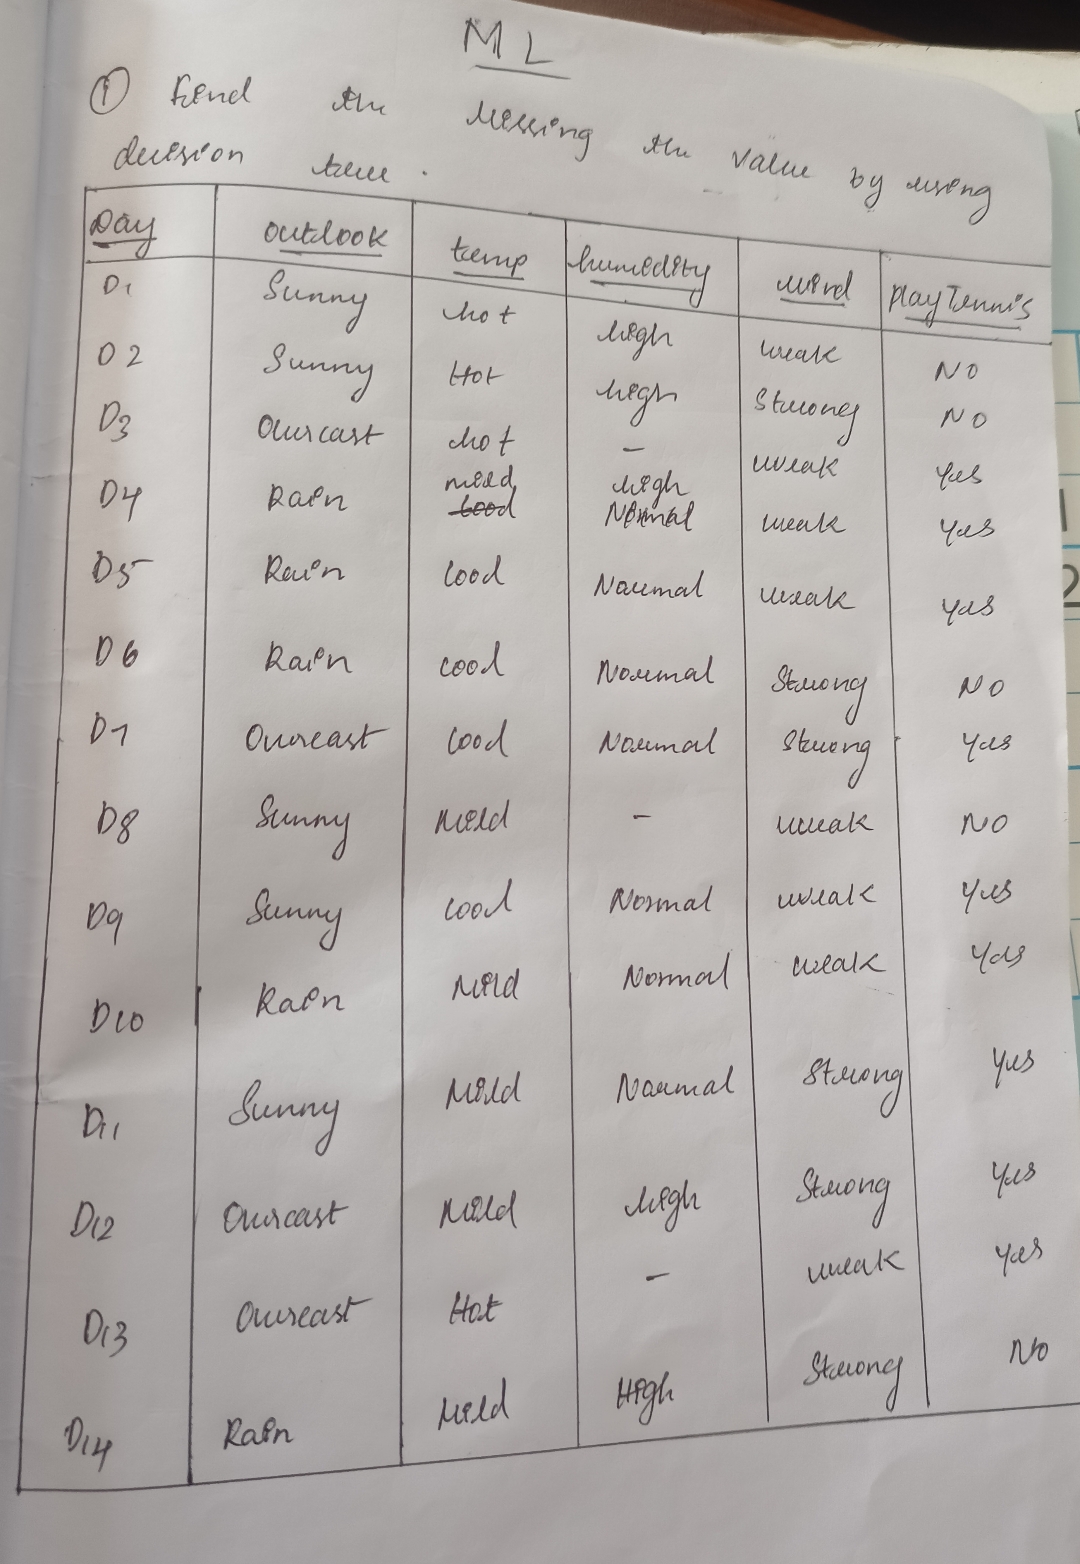 ML
① Find the Missing the value by using
decision tree.
Day outlook temp humidity wind play Tennis
D1 Sunny hot high weak NO
D2 Sunny Hot high Strong NO
D3 Ourcast hot - weak yes
D4 Rain mild high weak yes
Normal
D5 Rain cood Normal weak yes
D6 Rain cood Normal Strong NO
D7 Overcast cood Normal Strong yes
D8 Sunny Mild - weak NO
D9 Sunny cood Normal weak yes
D10 Rain Mild Normal weak yes
D11 Sunny Mild Normal Strong yes
D12 Overcast Mild high Strong yes
D13 Overcast Hot - weak yes
D14 Rain Mild High Strong No